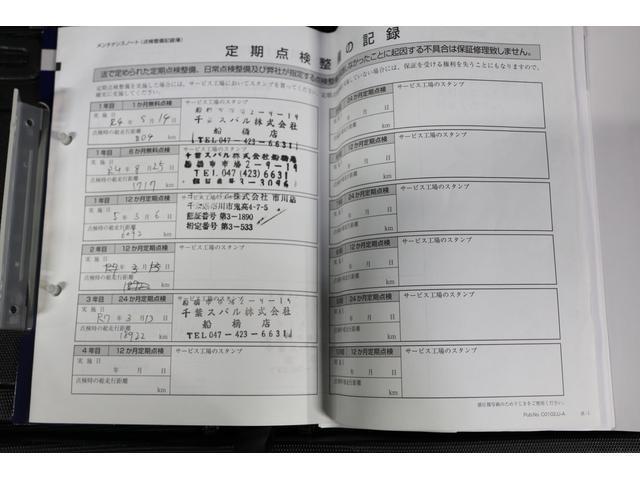 メンテナンスノート(点検整備記録簿)
定期点検整
の記録
法で定められた定期点検整備、日常点検整備及び弊社が指定する点検整
なかったことに起因する不具合は保証修理致しません。
定期点検整備を実施した場合には、サービス工場においてスタンプを
ていない場合には、保証を受ける権利を失うこともなりますので、
確実に実施してください。
1年目 1か月無料点検
サービス工場のスタンプ
実施日
R4年 5月 14日
点検時の総走行距離
804 km
千葉スバル株式会社
船橋店
TEL.047-423-6631
1年目 6か月無料点検
サービス工場のスタンプ
実施日
R4年 8月 25日
点検時の総走行距離
1717 km
千葉スバル株式会社船橋店
船橋市市場2-9-14
TEL. 047 (423) 6631
1年目 12か月定期点検
実施日
5年 3月 6日
点検時の総走行距離
6092 km
株式会社 市川店
市川市鬼高4-7-5
認証番号 第3-1890
指定番号 第3-533
2年目 12か月定期点検
サービス工場のスタンプ
実施日
R7年 3月 日
点検時の総走行距離
18922 km
3年目 24か月定期点検
サービス工場のスタンプ
実施日
R7年 3月 13日
点検時の総走行距離
18922 km
千葉スバル株式会社
船橋店
TEL.047-423-6631
4年目 12か月定期点検
サービス工場のスタンプ
実施日
年 月 日
点検時の総走行距離
km
24か月定期点検
サービス工場のスタンプ
年 月 日
km
12か月定期点検
サービス工場のスタンプ
年 月 日
km
24か月定期点検
サービス工場のスタンプ
年 月 日
km
12か月定期点検
サービス工場のスタンプ
年 月 日
km
24か月定期点検
サービス工場のスタンプ
年 月 日
km
12か月定期点検
サービス工場のスタンプ
年 月 日
km
Pub.No. C0102JJ-A